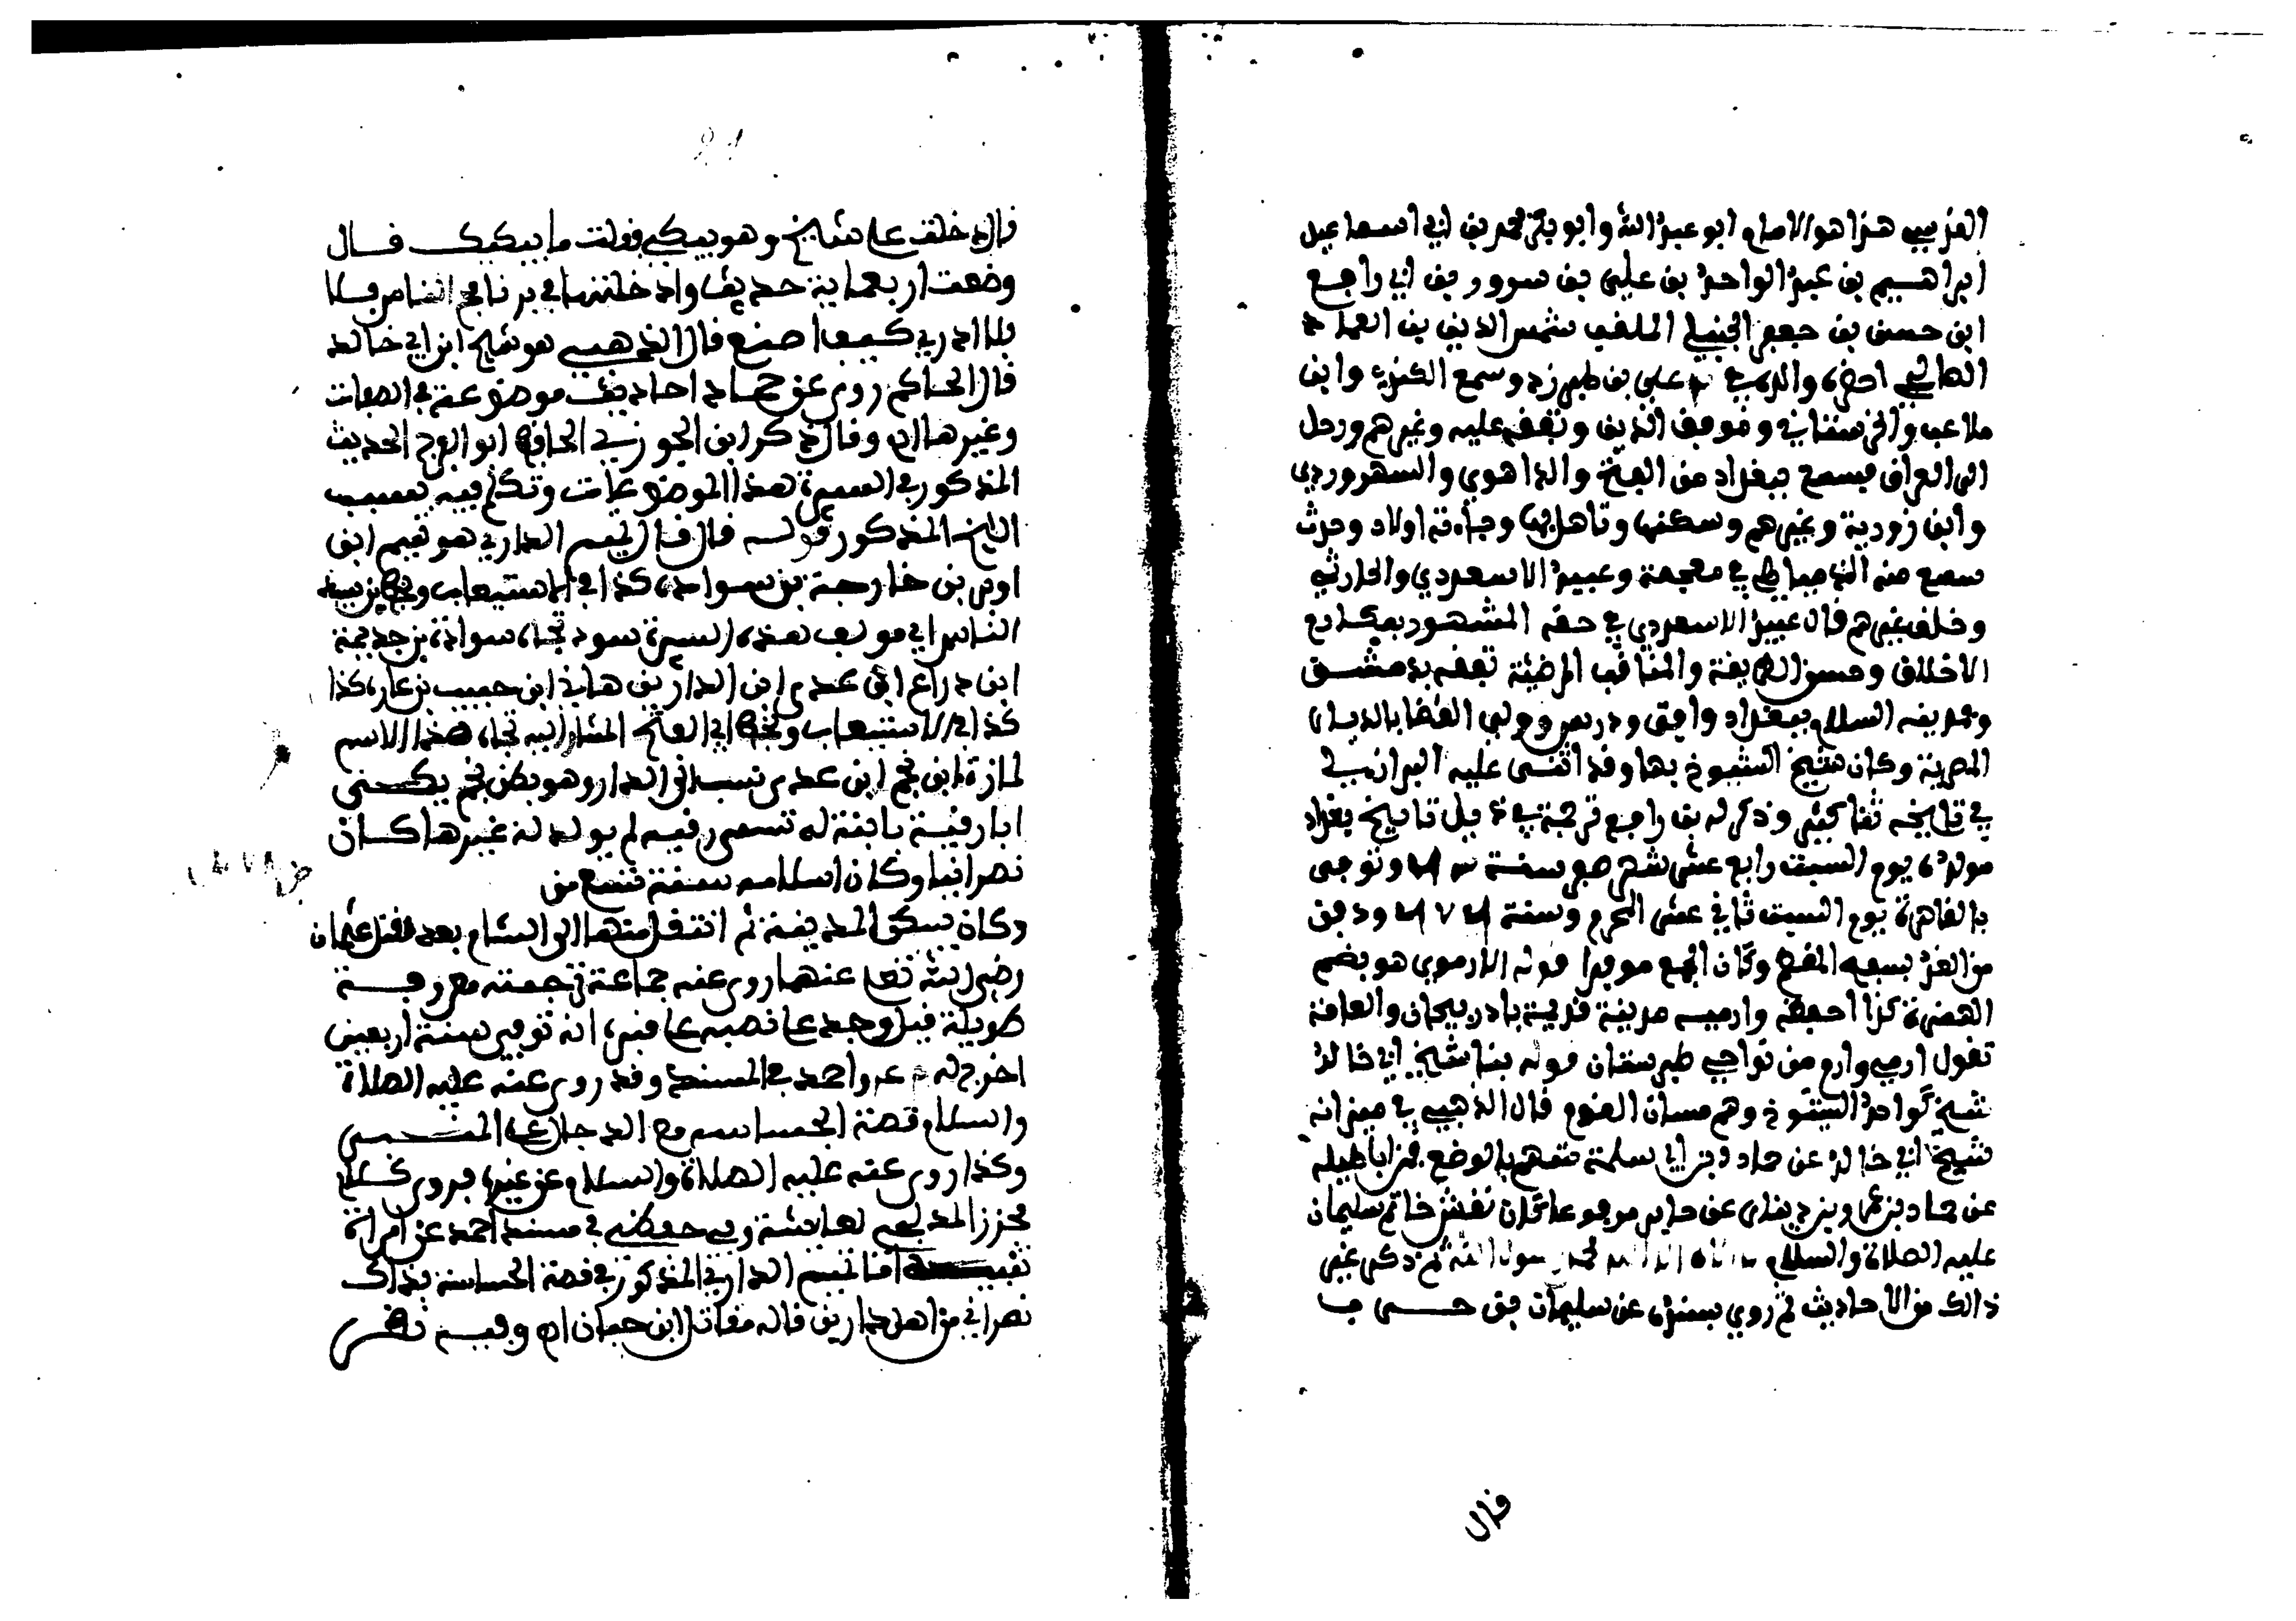 العز بيبي هذا هو الامام ابو عبد الله وابو بكر محمد بن ابي اسماعيل
ابراهيم بن عبد الواحد بن علي بن سرور بن ابي راجع
ابن حسن بن جعفر الحنبلي الملقب شمس الدين بن العماد
الصالحي احضره والده في علي بن طبرزد وسمع الكندي وابن
ملاعب والخرستاني وموفق الدين وتفقه عليه وغيرهم ورحل
الى العراق فسمع ببغداد من الفتح والداهري والسهروردي
وابن زورية وغيرهم وسكنها وتاهل بها وجاءته اولاد وحدث
سمع منه الدمياطي في معجمه وعبيد الاسعردي والحارثي
وخلف غيرهم قال عبيد الاسعردي في حقه المشهود بمكارم
الاخلاق وحسن الطريقة والمناقب المرضية تفقه بدمشق
ومدينة السلام بغداد وافتى ودرس وولي القضا بالديار
المصرية وكان شيخ الشيوخ بها وقد اثنى عليه البرزالي
في تاريخه ثنا كثير وذكر له بن راجع ترجمة في ذيل تاريخ بغداد
مولده يوم السبت رابع عشر شهر صفر سنة وتوفي
بالقاهرة يوم السبت ثاني عشر المحرم وسنة ودفن
من الغد بسفح المقطم وكان الجمع موفرا قوله الارموي هو بضم
الهمزة كذا احفظه وارميه مدينة قديمة باذربيجان والعامة
تقول ارمي وارم من نواحي طبرستان قوله بنا شيخ ابي خالد
شيخ كواحد الشيوخ وهم مسان القوم قال الذهبي في ميزانه
شيخ ابي خالد عن حماد بن ابي سلمة متهم بالوضع فمن اباطيله
عن حماد بن عمرو بن دينار عن جابر مرفوعا كان نقش خاتم سليمان
عليه الصلاة والسلام لا اله الا الله محمد رسول الله ثم ذكر غير
ذالك من الاحاديث ثم روي بسنده عن سليمان بن حرب
قال
قال دخلت على شيخ وهو يبكي فقلت ما يبكيك قال
وضعت اربعماية حديث وادخلتها في برنامج الناس فلا
ادري كيف اصنع قال الذهبي هو شيخ ابن ابي خالد
قال الحاكم روى عن حماد احاديث موضوعة في الصفات
وغيرها اه وقال ذكر ابن الجوزي الحافظ ابو الفرج الحديث
المذكور في السيرة هذا الموضوعات وتكلم فيه بسبب
الشيخ المذكور قوله قال قال تميم الداري هو تميم ابن
اوس بن خارجة بن سواد كذا في الاستيعاب وبخط بن سيد
الناس ابي مولف هذه السيرة سود تجاه سوادة بن جذيمة
ابن دراع ابن عدي ابن الدار بن هاني ابن حبيب بن نمارة كذا
كذا في الاستيعاب وبخط ابي الفتح المشار اليه تجاه هذا الاسم
لمازة ابن لخم ابن عدي نسب الى الدار وهو بطن لخم يكنى
ابا رقية بابنة له تسمى رقيه لم يولد له غيرها كان
نصرانيا وكان اسلامه سنة تسع من
وكان يسكن المدينة ثم انتقل منها الى الشام بعد قتل عثمان
رضي الله تعا عنهما روى عنه جماعة ترجمته معروفة
طويلة قيل وجد على نصيبه على قبره انه توفي سنة اربعين
اخرج له م عه واحمد في المسند وقد روى عنه عليه الصلاة
والسلام قصة الجساسه مع الدجال على المنبر
وكذا روى عنه عليه الصلاة والسلام عن غيره فروى كلام
مجزز المدلجي لعايشة وفي حفظي في مسند احمد عن امراة
تنبيه اما تميم الداري المذكور في قصة الجساسة فذاك
نصراني من اهل دارين قاله مقاتل ابن حيان اه وفيه نظر